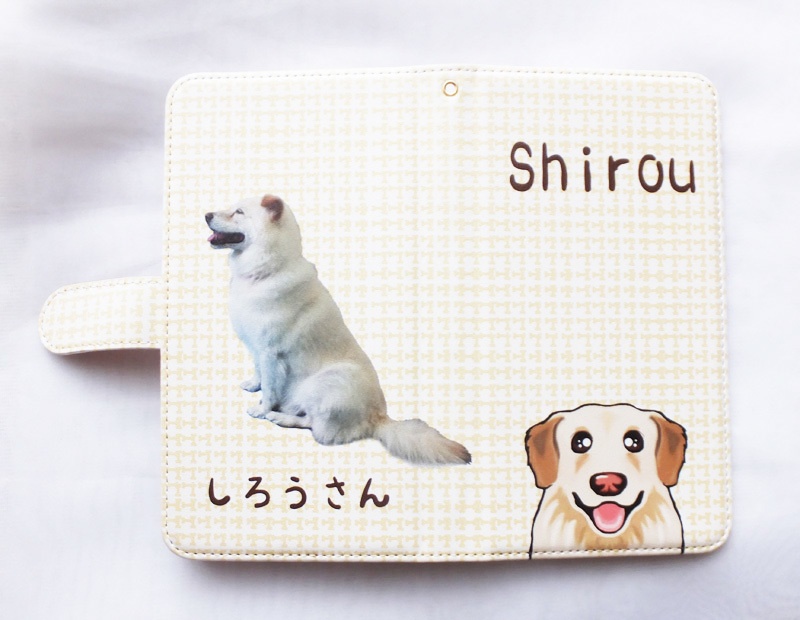 Shirou
しろうさん